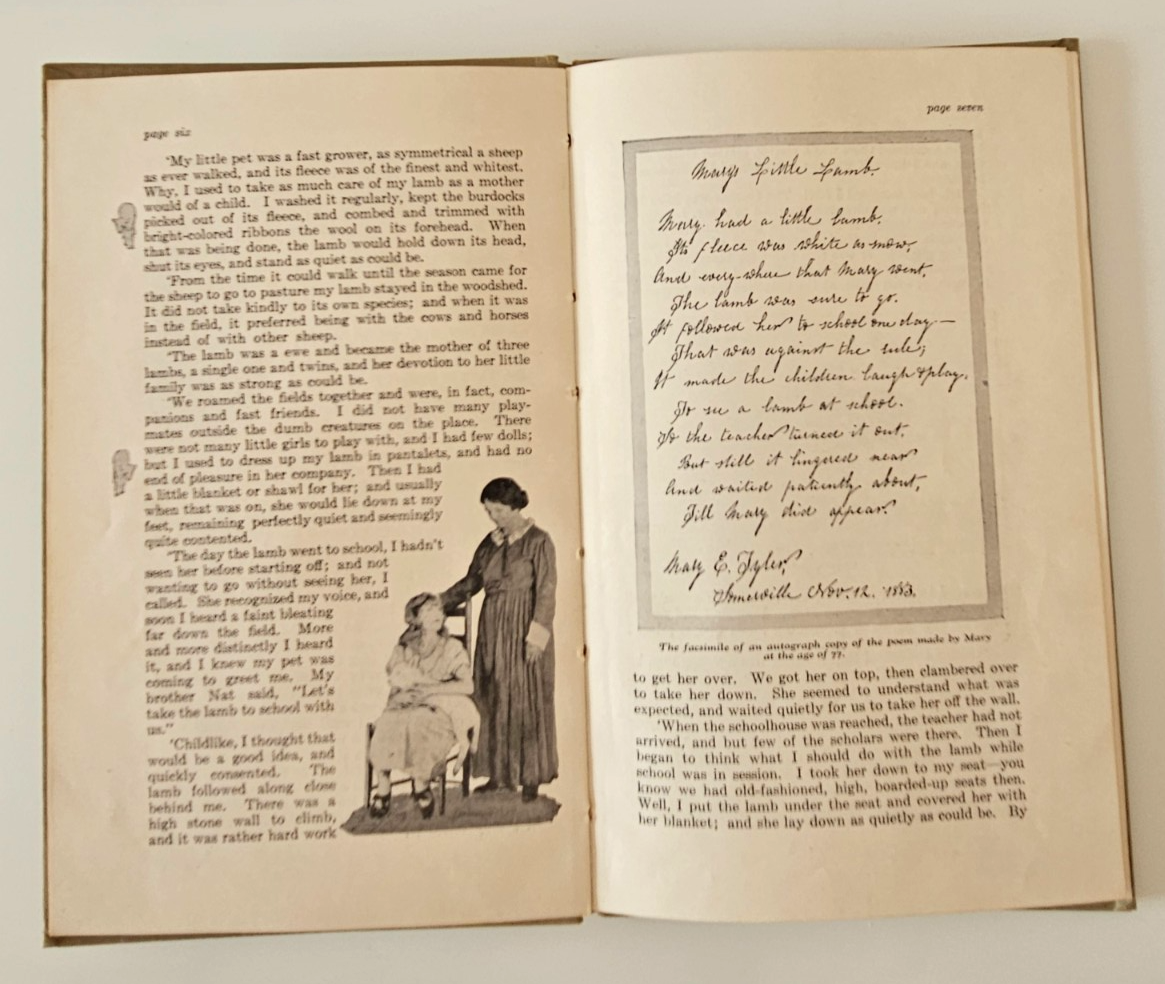 page six
'My little pet was a fast grower, as symmetrical a sheep
as ever walked, and its fleece was of the finest and whitest.
Why, I used to take as much care of my lamb as a mother
would of a child. I washed it regularly, kept the burdocks
picked out of its fleece, and combed and trimmed with
bright-colored ribbons the wool on its forehead. When
that was being done, the lamb would hold down its head,
shut its eyes, and stand as quiet as could be.
'From the time it could walk until the season came for
the sheep to go to pasture my lamb stayed in the woodshed.
It did not take kindly to its own species; and when it was
in the field, it preferred being with the cows and horses
instead of with other sheep.
'The lamb was a ewe and became the mother of three
lambs, a single one and twins, and her devotion to her little
family was as strong as could be.
'We roamed the fields together and were, in fact, com-
panions and fast friends. I did not have many play-
mates outside the dumb creatures on the place. There
were not many little girls to play with, and I had few dolls;
but I used to dress up my lamb in pantalets, and had no
end of pleasure in her company. Then I had
a little blanket or shawl for her; and usually
when that was on, she would lie down at my
feet, remaining perfectly quiet and seemingly
quite contented.
'The day the lamb went to school, I hadn't
seen her before starting off; and not
wanting to go without seeing her, I
called. She recognized my voice, and
soon I heard a faint bleating
far down the field. More
and more distinctly I heard
it, and I knew my pet was
coming to greet me. My
brother Nat said, "Let's
take the lamb to school with
us."
'Childlike, I thought that
would be a good idea, and
quickly consented. The
lamb followed along close
behind me. There was a
high stone wall to climb,
and it was rather hard work
page seven
Mary's Little Lamb.
Mary had a little lamb,
Its fleece was white as snow,
And every-where that Mary went,
The lamb was sure to go.
It followed her to school one day—
That was against the rule;
It made the children laugh & play,
To see a lamb at school.
So the teacher turned it out,
But still it lingered near
And waited patiently about,
Till Mary did appear.
Mary E. Tyler,
Somerville Nov. 12. 1883.
The facsimile of an autograph copy of the poem made by Mary
at the age of 77.
to get her over. We got her on top, then clambered over
to take her down. She seemed to understand what was
expected, and waited quietly for us to take her off the wall.
'When the schoolhouse was reached, the teacher had not
arrived, and but few of the scholars were there. Then I
began to think what I should do with the lamb while
school was in session. I took her down to my seat—you
know we had old-fashioned, high, boarded-up seats then.
Well, I put the lamb under the seat and covered her with
her blanket; and she lay down as quietly as could be. By